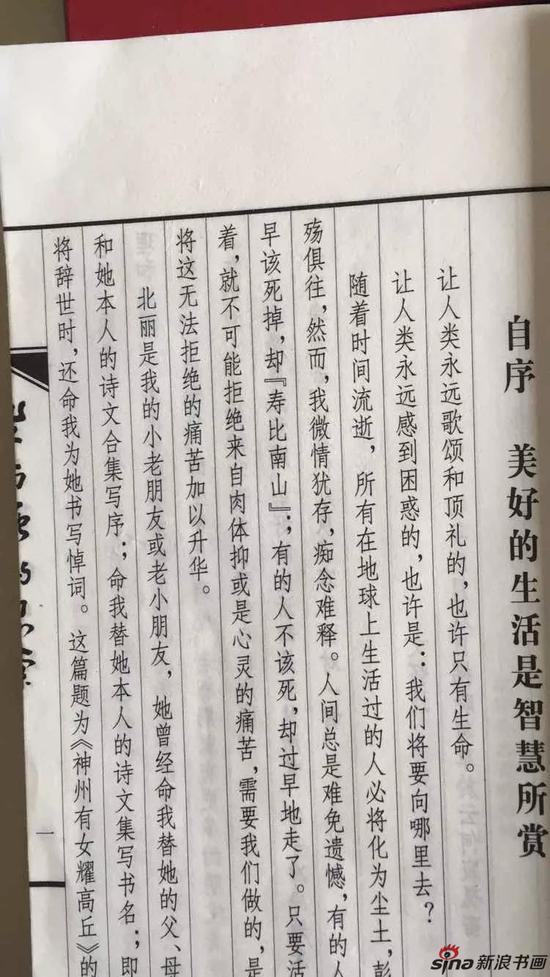 自序 美好的生活是智慧所赏
让人类永远歌颂和顶礼的，也许只有生命。
让人类永远感到困惑的，也许是：我们将要向哪里去？
随着时间流逝，所有在地球上生活过的人必将化为尘土，彭
殇俱往，然而，我微情犹存，痴念难释。人间总是难免遗憾，有的人
早该死掉，却『寿比南山』；有的人不该死，却过早地走了。只要活
着，就不可能拒绝来自肉体抑或是心灵的痛苦，需要我们做的，是
将这无法拒绝的痛苦加以升华。
北丽是我的小老朋友或老小朋友，她曾经命我替她的父、母
和她本人的诗文合集写序；命我替她本人的诗文集写书名；即
将辞世时，还命我为她书写悼词。这篇题为《神州有女耀高丘》的
一
sina新浪书画